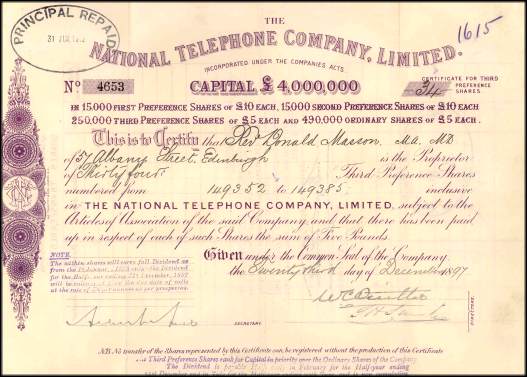 PRINCIPAL REPAID
31
THE
1615
NATIONAL TELEPHONE COMPANY, LIMITED.
INCORPORATED UNDER THE COMPANIES ACTS
No 4653
CAPITAL £4,000,000
CERTIFICATE FOR THIRD
34 PREFERENCE
SHARES
IN 15,000 FIRST PREFERENCE SHARES OF £10 EACH, 15,000 SECOND PREFERENCE SHARES OF £10 EACH
250,000 THIRD PREFERENCE SHARES OF £5 EACH AND 490,000 ORDINARY SHARES OF £5 EACH.
This is to Certify that Rev Donald Masson, M.A. M.D
of 57 Albany Street, Edinburgh is the Proprietor
of Thirty four Third Preference Shares
numbered from 149352 to 149385 inclusive
in THE NATIONAL TELEPHONE COMPANY, LIMITED, subject to the
Articles of Association of the said Company and that there has been paid
up in respect of each of such Shares the sum of Five Pounds.
NOTE.
The within shares will carry full Dividend as
Given under the Common Seal of the Company
the Twenty third day of December 1897
SECRETARY
DIRECTORS.
N.B. No transfer of the Shares represented by this Certificate can be registered without the production of this Certificate
Third Preference Shares rank for Capital in priority over the Ordinary Shares of the Company
The Dividend is payable in February for the Half-year ending